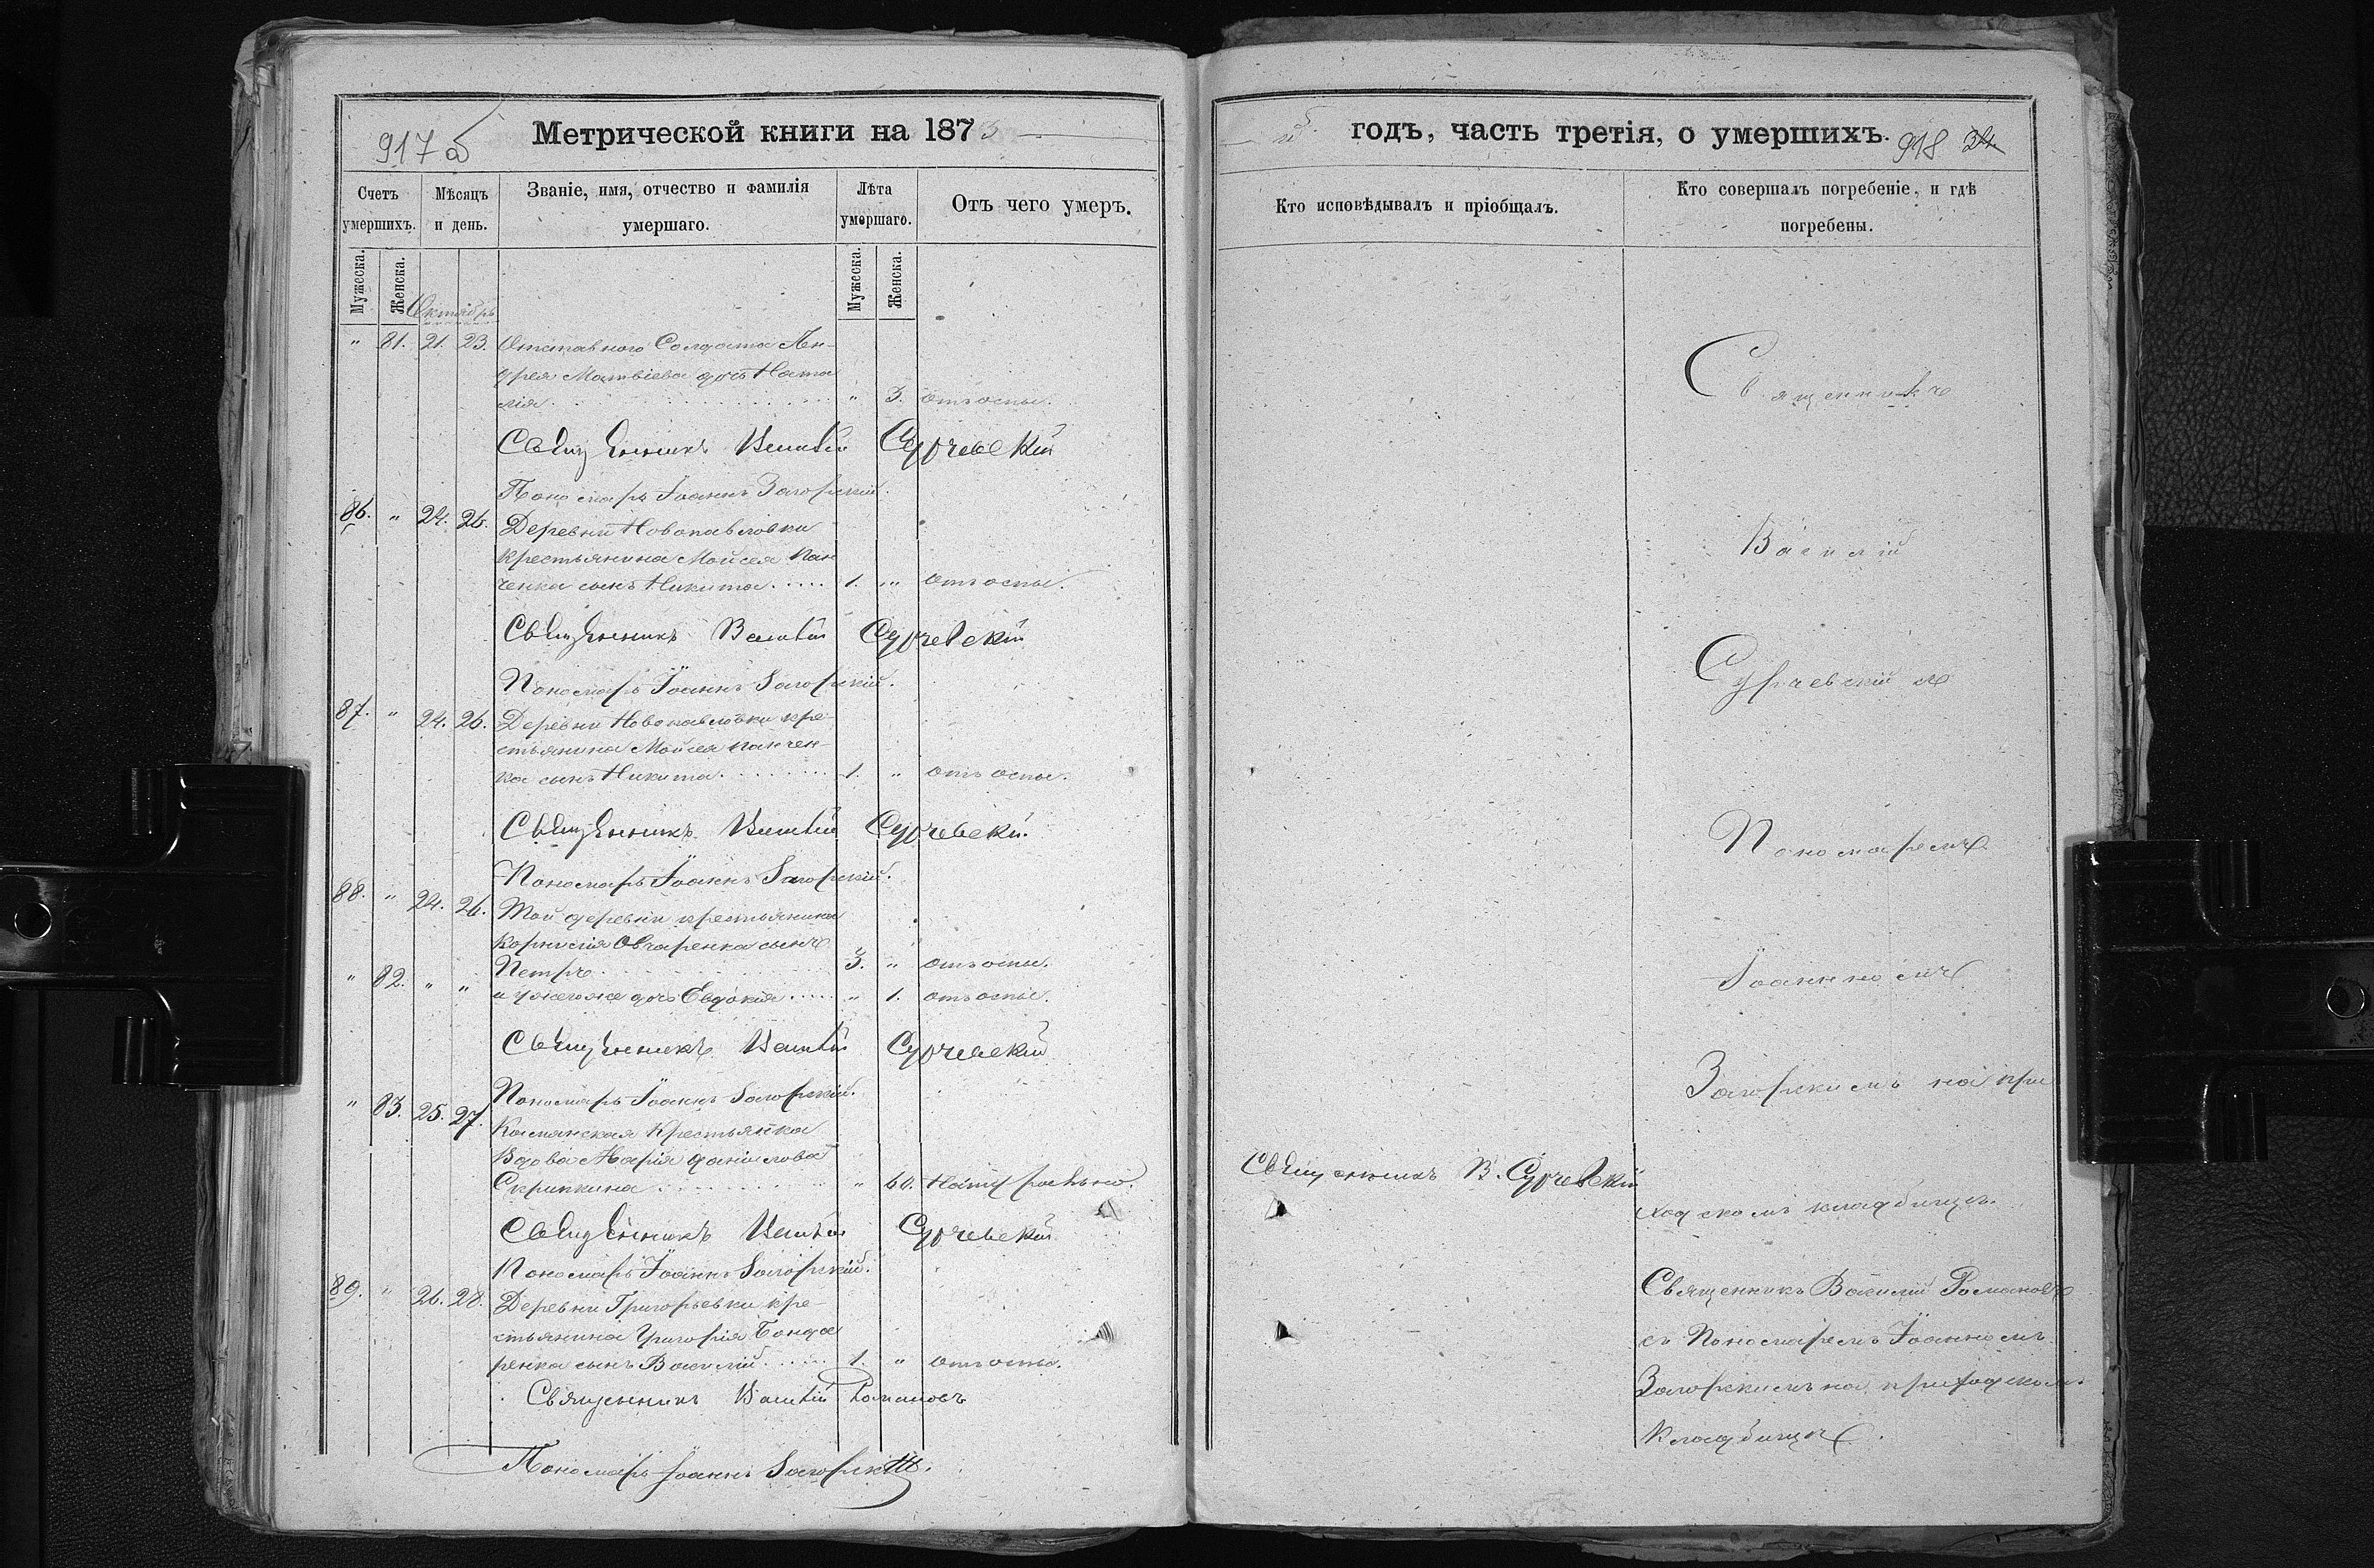 917 б
Метрической книги на 1873
Счетъ умершихъ.
Мѣсяцъ и день.
Званіе, имя, отчество и фамилія умершаго.
Лѣта умершаго.
Отъ чего умеръ.
Мужеска.
Женска.
Октябрь
Мужеска.
Женска.
" 81. 21. 23. Отставного Солдата Ан-
дрея Матвіева дочь Ната
лія " 3. отъ оспы.
Священникъ Василій Сурчевскій
Пономарь Іоаннъ Загорскій.
86. " 24. 26. Деревни Новопавловки
крестьянина Мойсея Пан
ченка сынъ Никита 1. " отъ оспы.
Священникъ Василій Сурчевскій
Пономарь Іоаннъ Загорскій.
87. " 24. 26. Деревни Новопавловки кре-
стьянина Мойсея Панчен-
ка сынъ Никита 1. " отъ оспы.
Священникъ Василій Сурчевскій
Пономарь Іоаннъ Загорскій.
88. " 24. 26. Той деревни крестьянина
Корнилія Овчаренка сынъ
Петръ 3. " отъ оспы.
" 82. " " и у него же дочь Евдокія " 1. отъ оспы.
Священникъ Василій Сурчевскій
Пономарь Іоаннъ Загорскій.
" 83. 25. 27. Камянская Крестьянка
Вдова Марія Данилова
Скрипкина " 60. Натурально.
Священникъ Василій Сурчевскій
Пономарь Іоаннъ Загорскій.
89. " 26. 28. Деревни Григорьевки кре-
стьянина Григорія Бонда
ренка сынъ Василій 1. " отъ оспы.
Священникъ Василій Романовъ
Пономарь Іоаннъ Загорскій.
й годъ, часть третія, о умершихъ.
918
Кто исповѣдывалъ и пріобщалъ.
Кто совершалъ погребеніе, и гдѣ погребены.
Священникъ
Василій
Сурчевскій съ
Пономаремъ
Іоанномъ
Загорскимъ на при
Священникъ В. Сурчевскій
ходскомъ кладбищѣ.
Священникъ Василій Романовъ
съ Пономаремъ Іоанномъ
Загорскимъ на приходскомъ
кладбищѣ.